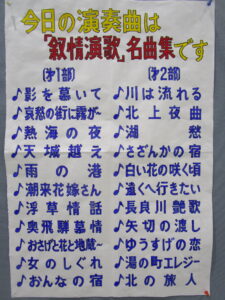 今日の演奏曲は
「叙情演歌」名曲集です
(才1部)
♪影を慕いて
♪哀愁の街に霧が〜
♪熱海の夜
♪天城越え
♪雨の港
♪潮来花嫁さん
♪浮草情話
♪奥飛騨慕情
♪おさげと花と地蔵〜
♪女のしぐれ
♪おんなの宿
(才2部)
♪川は流れる
♪北上夜曲
♪湖愁
♪さざんかの宿
♪白い花の咲く頃
♪遠くへ行きたい
♪長良川艶歌
♪矢切の渡し
♪ゆうすげの恋
♪湯の町エレジー
♪北の旅人